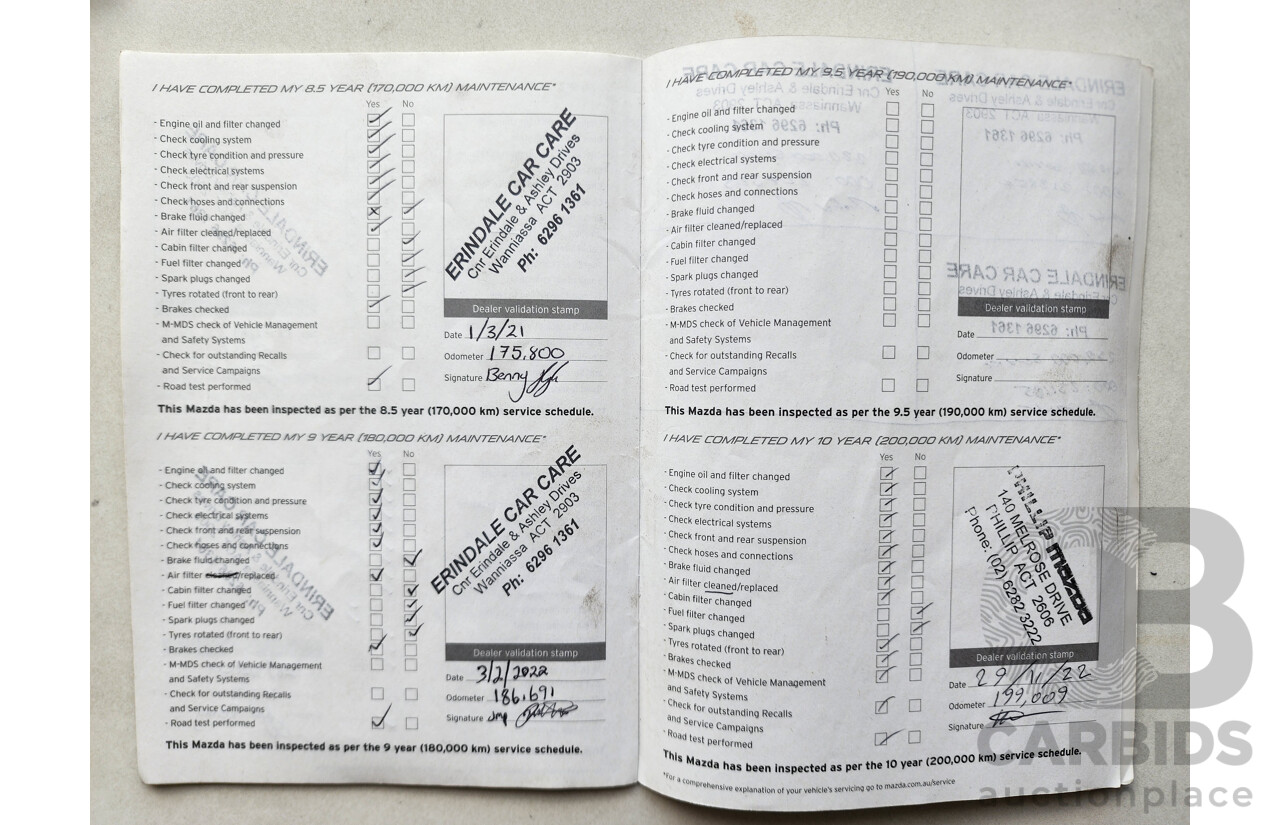 I HAVE COMPLETED MY 8.5 YEAR (170,000 KM) MAINTENANCE*
Yes No
- Engine oil and filter changed
- Check cooling system
- Check tyre condition and pressure
- Check electrical systems
- Check front and rear suspension
- Check hoses and connections
- Brake fluid changed
- Air filter cleaned/replaced
- Cabin filter changed
- Fuel filter changed
- Spark plugs changed
- Tyres rotated (front to rear)
- Brakes checked
- M-MDS check of Vehicle Management
and Safety Systems
- Check for outstanding Recalls
and Service Campaigns
- Road test performed
ERINDALE CAR CARE
Cnr Erindale & Ashley Drives
Wanniassa ACT 2903
Ph: 6296 1361
Dealer validation stamp
Date 1/3/21
Odometer 175,800
Signature Benny
This Mazda has been inspected as per the 8.5 year (170,000 km) service schedule.
I HAVE COMPLETED MY 9 YEAR (180,000 KM) MAINTENANCE*
Yes No
- Engine oil and filter changed
- Check cooling system
- Check tyre condition and pressure
- Check electrical systems
- Check front and rear suspension
- Check hoses and connections
- Brake fluid changed
- Air filter cleaned/replaced
- Cabin filter changed
- Fuel filter changed
- Spark plugs changed
- Tyres rotated (front to rear)
- Brakes checked
- M-MDS check of Vehicle Management
and Safety Systems
- Check for outstanding Recalls
and Service Campaigns
- Road test performed
ERINDALE CAR CARE
Cnr Erindale & Ashley Drives
Wanniassa ACT 2903
Ph: 6296 1361
Dealer validation stamp
Date 3/2/2022
Odometer 186,691
Signature
This Mazda has been inspected as per the 9 year (180,000 km) service schedule.
I HAVE COMPLETED MY 9.5 YEAR (190,000 KM) MAINTENANCE*
Yes No
- Engine oil and filter changed
- Check cooling system
- Check tyre condition and pressure
- Check electrical systems
- Check front and rear suspension
- Check hoses and connections
- Brake fluid changed
- Air filter cleaned/replaced
- Cabin filter changed
- Fuel filter changed
- Spark plugs changed
- Tyres rotated (front to rear)
- Brakes checked
- M-MDS check of Vehicle Management
and Safety Systems
- Check for outstanding Recalls
and Service Campaigns
- Road test performed
Dealer validation stamp
Date
Odometer
Signature
This Mazda has been inspected as per the 9.5 year (190,000 km) service schedule.
I HAVE COMPLETED MY 10 YEAR (200,000 KM) MAINTENANCE*
Yes No
- Engine oil and filter changed
- Check cooling system
- Check tyre condition and pressure
- Check electrical systems
- Check front and rear suspension
- Check hoses and connections
- Brake fluid changed
- Air filter cleaned/replaced
- Cabin filter changed
- Fuel filter changed
- Spark plugs changed
- Tyres rotated (front to rear)
- Brakes checked
- M-MDS check of Vehicle Management
and Safety Systems
- Check for outstanding Recalls
and Service Campaigns
- Road test performed
PHILLIP mazda
140 MELROSE DRIVE
PHILLIP ACT 2606
Phone: (02) 6282 3222
Dealer validation stamp
Date 29/11/22
Odometer 199,009
Signature
This Mazda has been inspected as per the 10 year (200,000 km) service schedule.
*For a comprehensive explanation of your vehicle's servicing go to mazda.com.au/service
CARBIDS
auctionplace